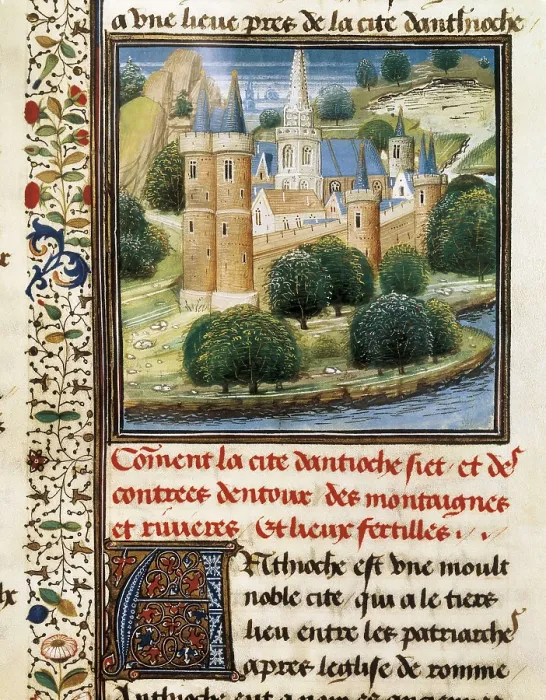 a vne lieue pres de la cite danthioche
Comẽnt la cite dantioche siet et des
contrees dentour des montaignes
et riuieres Et lieux fertilles . .
ANthioche est vne moult
noble cite qui a le tiers
lieu entre les patriarches
apres leglise de romme
Anthioche eut a nom